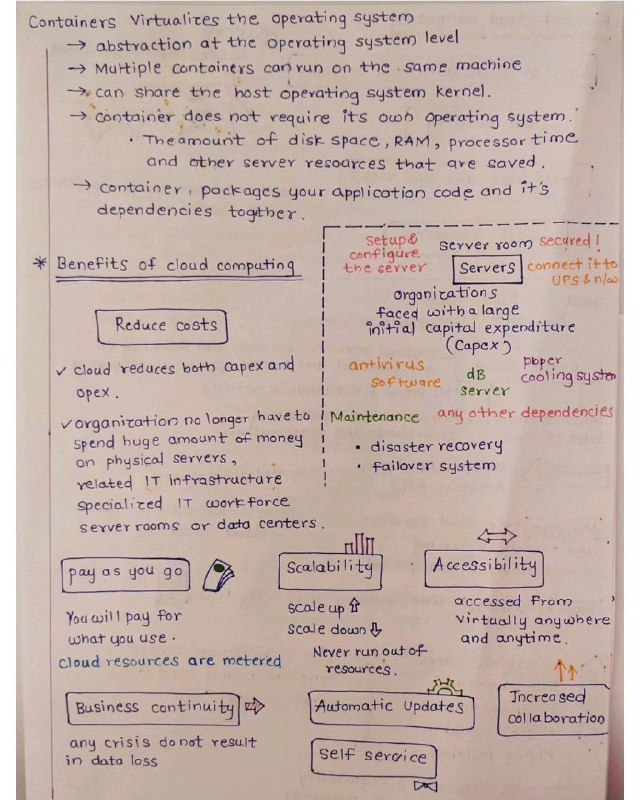 Containers Virtualizes the operating system
→ abstraction at the operating system level
→ Multiple containers can run on the same machine
→ can share the host operating system kernel.
→ container does not require its own operating system.
• The amount of disk space, RAM, processor time
and other server resources that are saved.
→ container, packages your application code and it's
dependencies togther.
* Benefits of cloud computing
Setup &
configure
the server
server room
secured!
Servers
connect it to
UPS & n/w
organizations
faced with a large
initial capital expenditure
(Capex)
antivirus
software
dB
server
cooling system
Maintenance
any other dependencies
• disaster recovery
• failover system
Reduce costs
✓ cloud reduces both capex and
opex.
✓ organization no longer have to
spend huge amount of money
on physical servers,
related IT infrastructure
specialized IT workforce
server rooms or data centers.
pay as you go
You will pay for
what you use.
cloud resources are metered
Scalability
scale up ⇧
scale down ⇩
Never run out of
resources.
Accessibility
accessed from
virtually anywhere
and anytime.
Business continuity
any crisis do not result
in data loss
Automatic Updates
Increased
collaboration
Self service